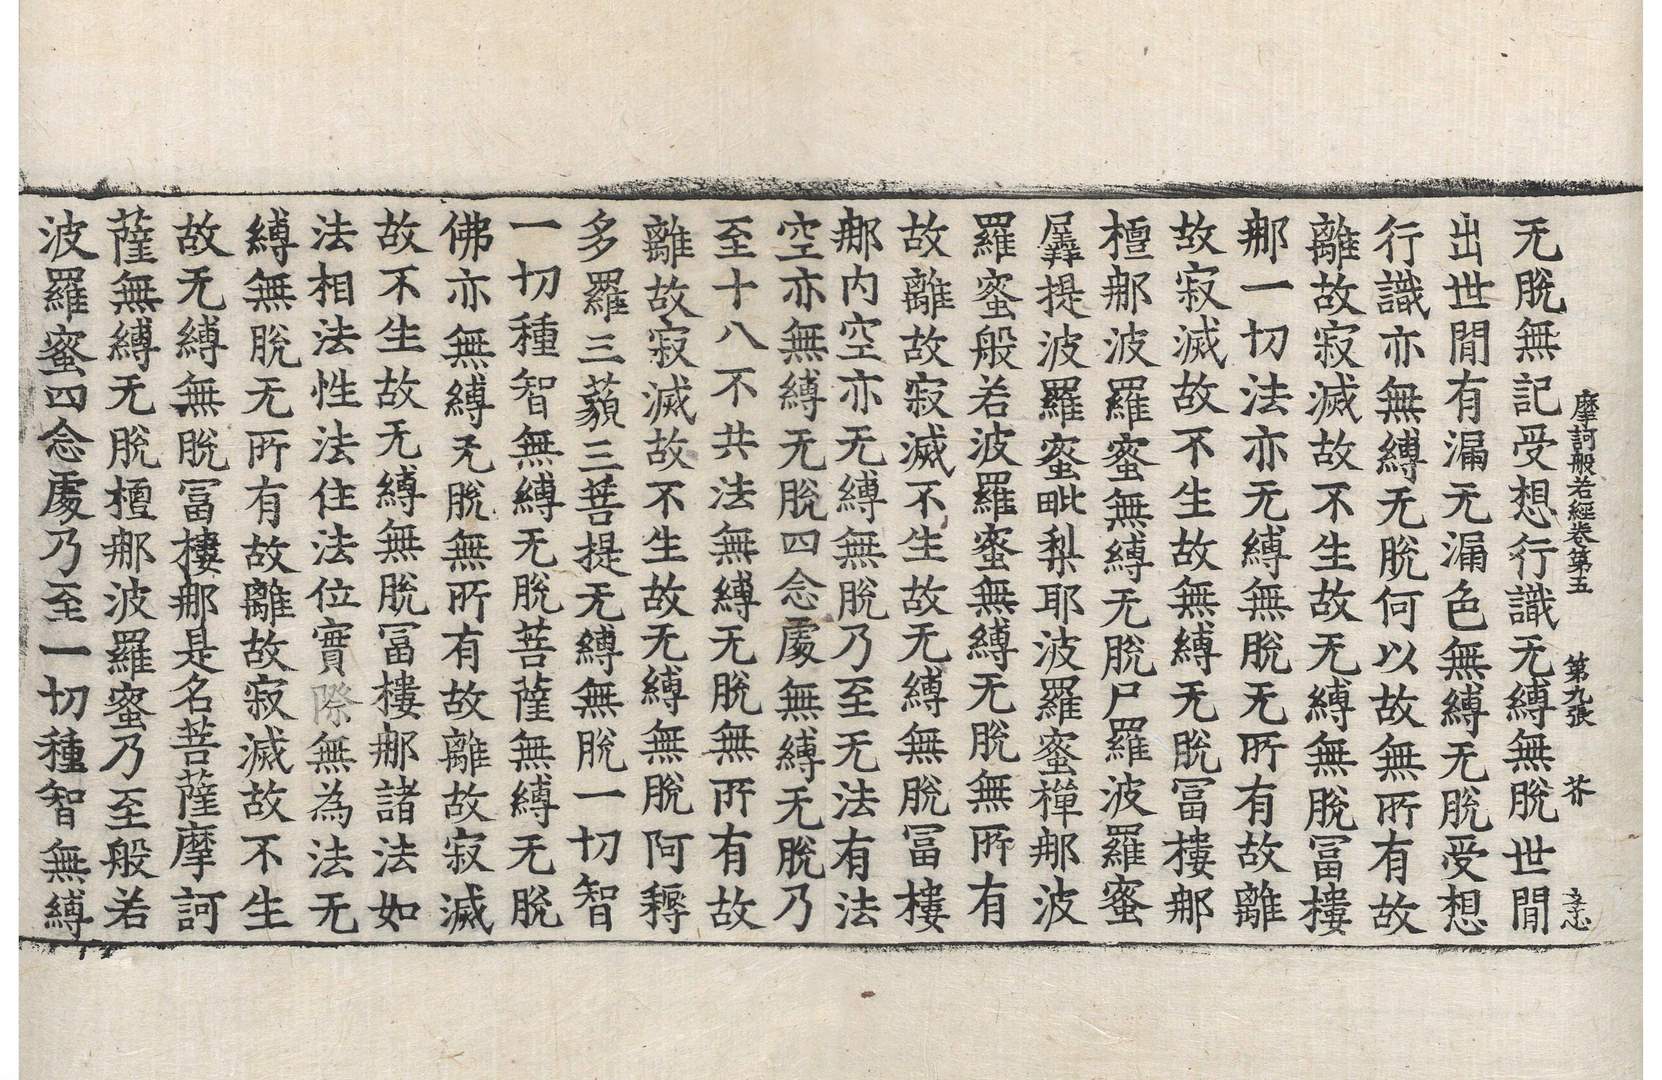 摩訶般若經卷第五 第九張 芥
无脫無記受想行識无縛無脫世閒
出世閒有漏无漏色無縛无脫受想
行識亦無縛无脫何以故無所有故
離故寂滅故不生故无縛無脫冨樓
那一切法亦无縛無脫无所有故離
故寂滅故不生故無縛无脫冨樓那
檀那波羅蜜無縛无脫尸羅波羅蜜
羼提波羅蜜毗梨耶波羅蜜禪那波
羅蜜般若波羅蜜無縛无脫無所有
故離故寂滅不生故无縛無脫冨樓
那内空亦无縛無脫乃至无法有法
空亦無縛无脫四念處無縛无脫乃
至十八不共法無縛无脫無所有故
離故寂滅故不生故无縛無脫阿耨
多羅三藐三菩提无縛無脫一切智
一切種智無縛无脫菩薩無縛无脫
佛亦無縛无脫無所有故離故寂滅
故不生故无縛無脫冨樓那諸法如
法相法性法住法位實際無為法无
縛無脫无所有故離故寂滅故不生
故无縛無脫冨樓那是名菩薩摩訶
薩無縛无脫檀那波羅蜜乃至般若
波羅蜜四念處乃至一切種智無縛